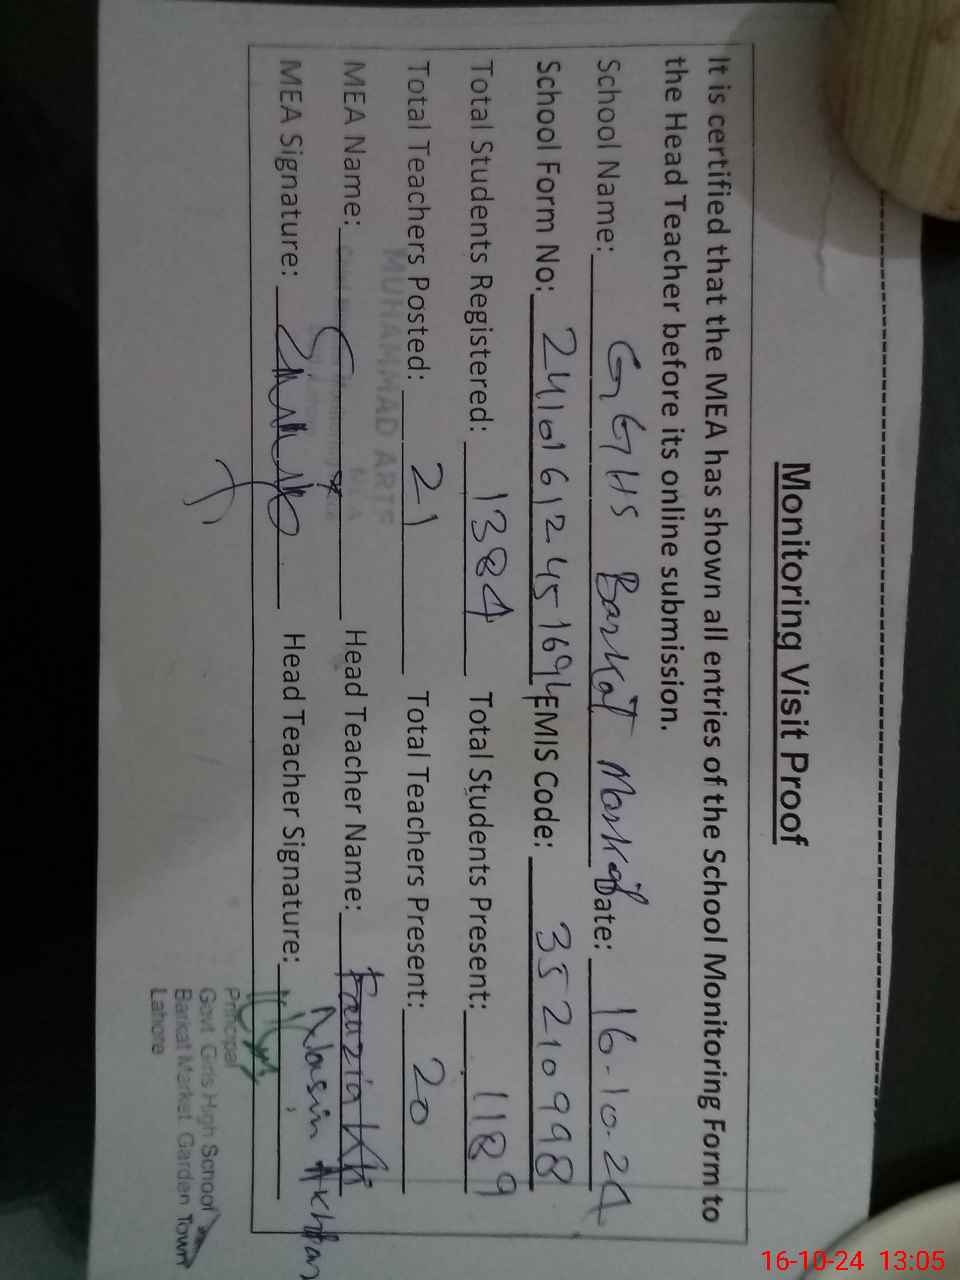 Monitoring Visit Proof
It is certified that the MEA has shown all entries of the School Monitoring Form to
the Head Teacher before its online submission.
School Name: GGHS Barkat Market Date: 16-10-24
School Form No: 24101612451694 EMIS Code: 35210998
Total Students Registered: 1384 Total Students Present: 1189
Total Teachers Posted: 21 Total Teachers Present: 20
MUHAMMAD ARIF
MEA Name: Head Teacher Name: Fauzia
MEA
Nasim Akhtar
MEA Signature: Head Teacher Signature:
Principal
Govt. Girls High School
Barkat Market Garden Town
Lahore
16-10-24 13:05